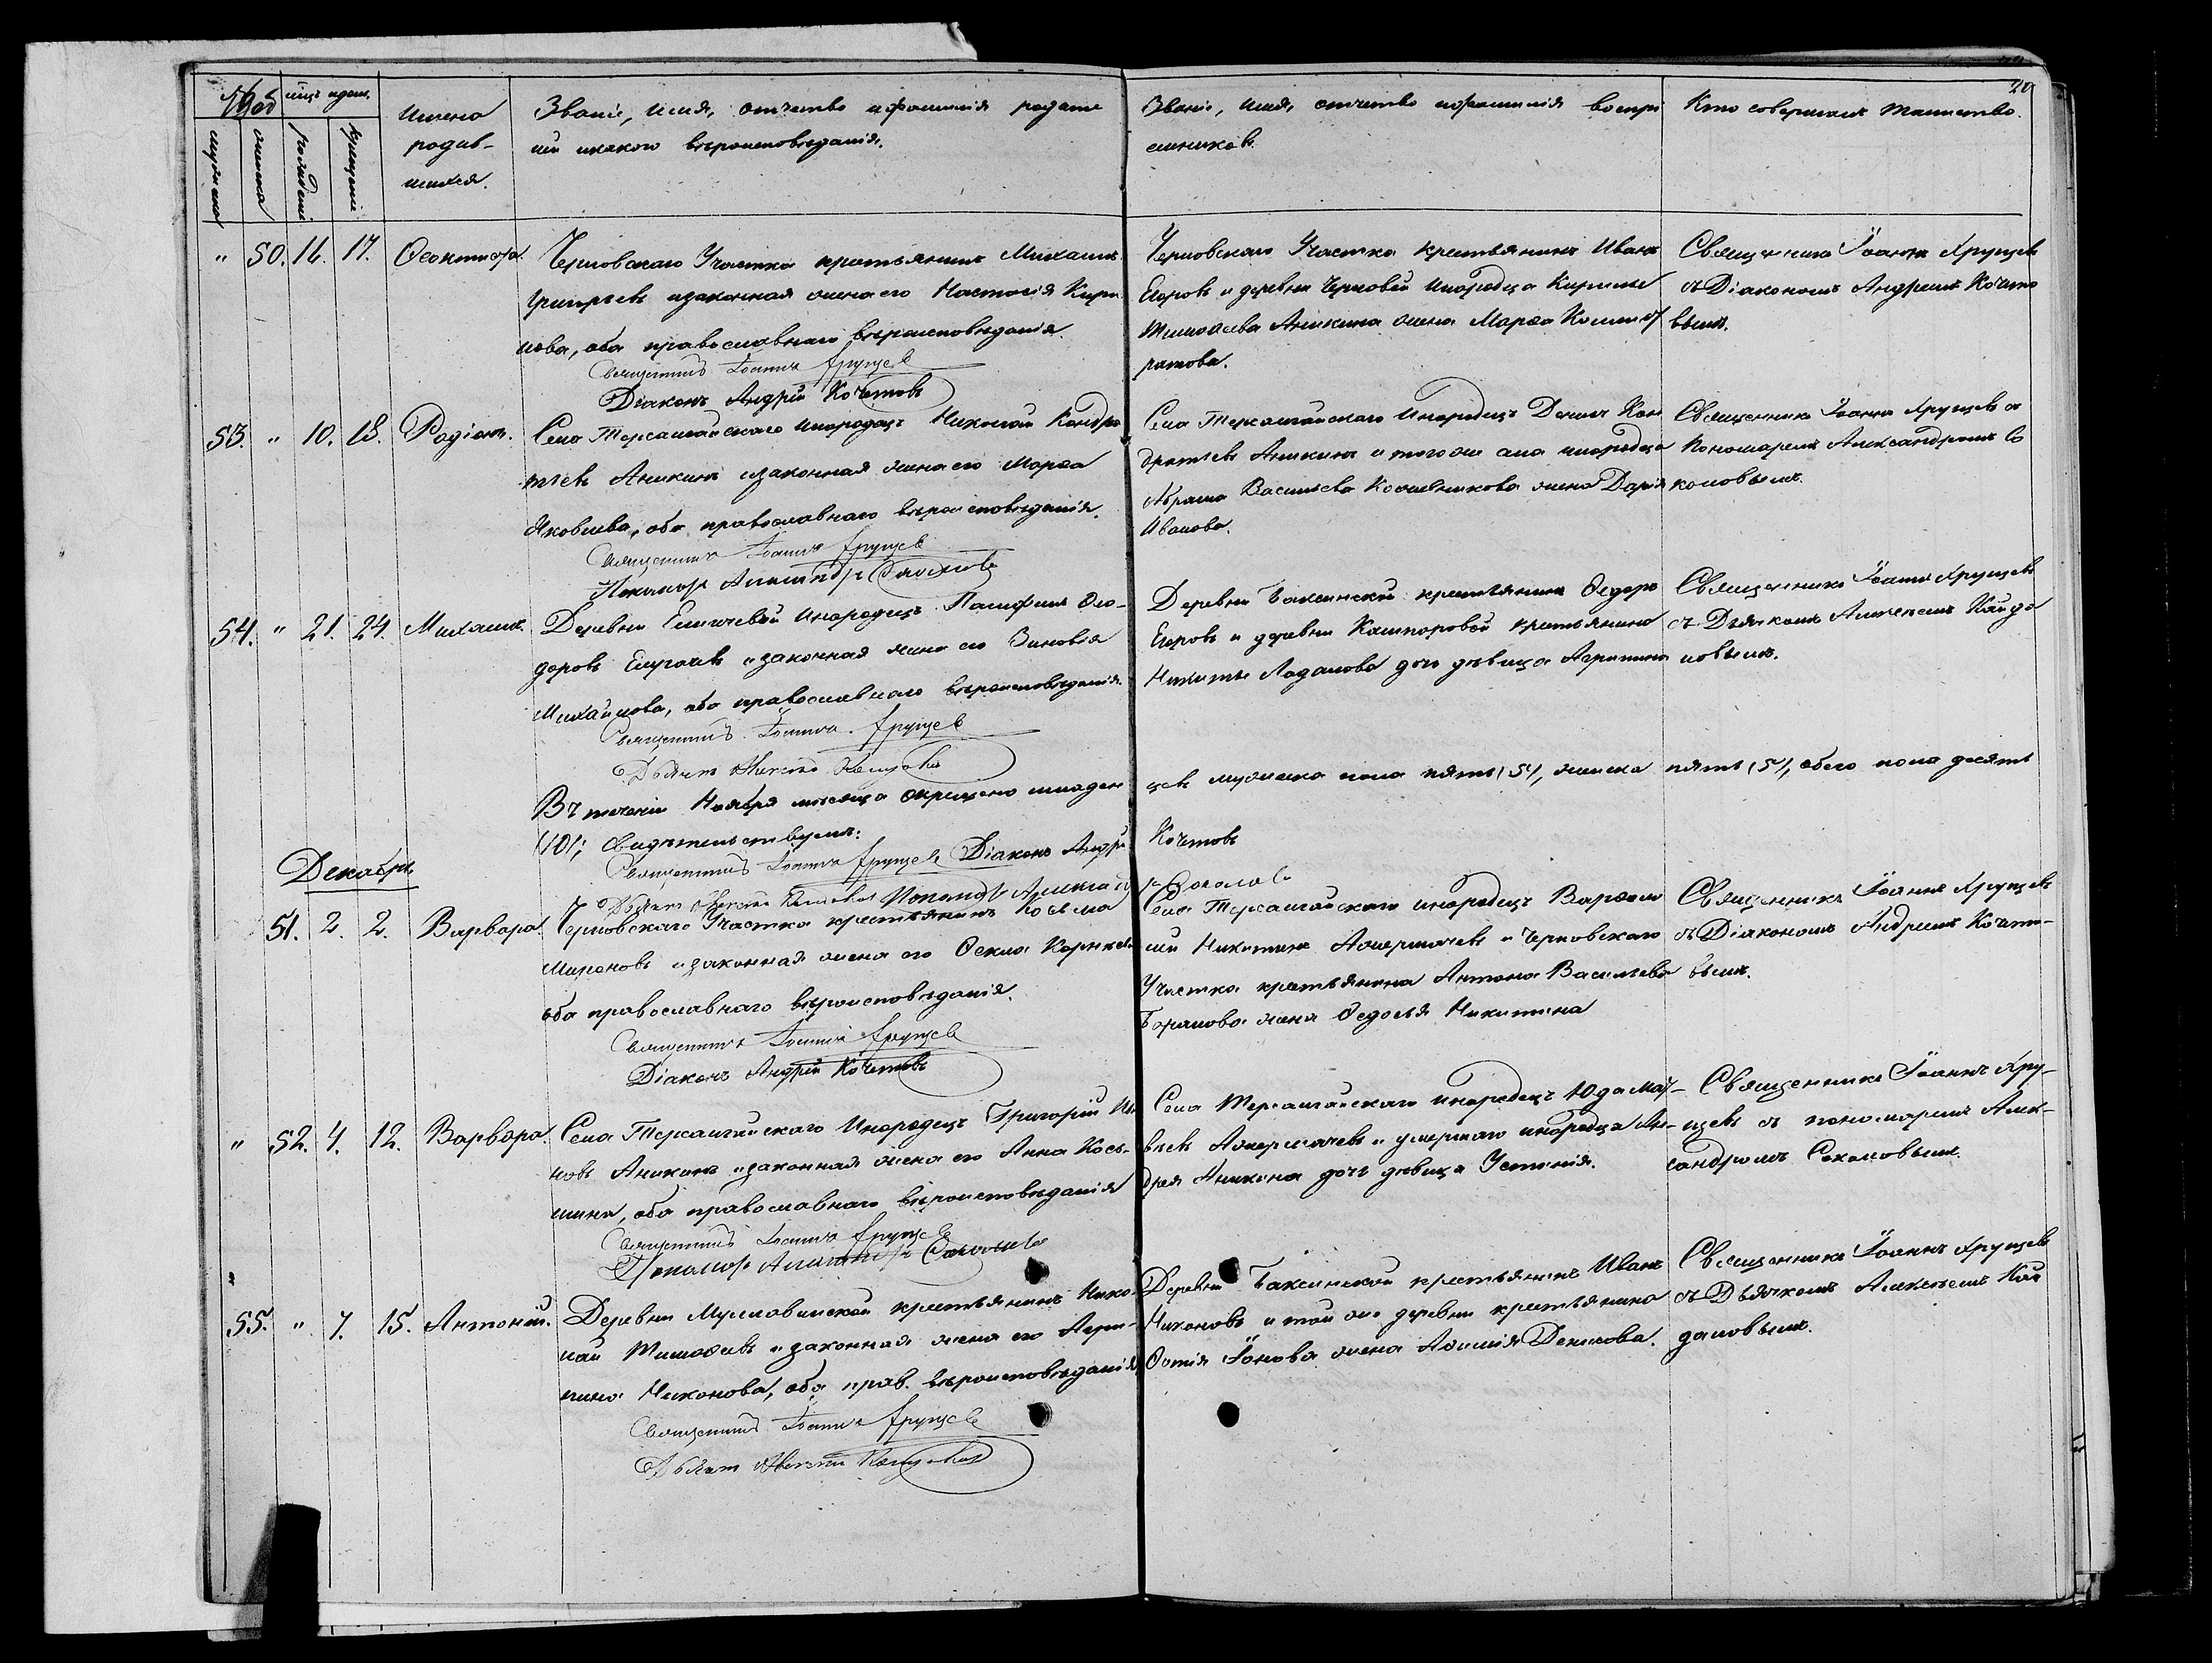 20
Имена
родив-
шихся.
Званіе, имя, отчество и фамилія родите
лей и какого вѣроисповѣданія.
Званіе, имя, отчество и фамилія воспрі
емниковъ.
Кто совершалъ таинство.
" 50. 16. 17. Феоктиста.
Черновскаго Участка крестьянинъ Михаилъ
Григорьевъ и законная жена его Настасія Кири
лова, оба православнаго вѣроисповѣданія.
Священникъ Іоаннъ Хрущевъ
Діаконъ Андрей Кочетовъ
Черновскаго Участка крестьянинъ Иванъ
Егоровъ и деревни Черновой инородца Кирилы
Тимофеева Аникина жена Марѳа
ратова.
Священникъ Іоаннъ Хрущевъ
съ Діакономъ Андреемъ Кочето
вымъ.
53. " 10. 18. Родіонъ.
Села Терсалгайскаго инородецъ Николай Кондра
тьевъ Аникинъ и законная жена его Марѳа
Яковлева, оба православнаго вѣроисповѣданія.
Священникъ Іоаннъ Хрущевъ
Пономарь Александръ Соколовъ
Села Терсалгайскаго инородецъ Данилъ Кон
дратьевъ Аникинъ и того же села инородца
Абрама Васильева Кожевникова жена Дарія
Иванова.
Священникъ Іоаннъ Хрущевъ съ
Пономаремъ Александромъ Со
коловымъ.
54. " 21. 24. Михаилъ.
Деревни Елгачевой инородецъ Панфилъ Ѳео-
доровъ Елгачевъ и законная жена его Зиновія
Михайлова, оба православнаго вѣроисповѣданія.
Священникъ Іоаннъ Хрущевъ
Дьячекъ Алексѣй
Деревни Баксинской крестьянинъ Ѳедоръ
Егоровъ и деревни Кашпоровой крестьянина
Никиты Ладанова дочь дѣвица Агрипина
Священникъ Іоаннъ Хрущевъ
съ Дьячкомъ Алексѣемъ Кайда
ловымъ.
Въ теченіи Ноября мѣсяца окрещено младен
цевъ мужеска пола пять (5), женска пять (5), обоего пола десять
(10); свидѣтельствуемъ:
Священникъ Іоаннъ Хрущевъ Діаконъ Андрей Кочетовъ
Дьячекъ Алексѣй Пономарь Александръ Соколовъ
Декабрь
51. 2. 2. Варвара.
Черновскаго Участка крестьянинъ Косьма
Мироновъ и законная жена его Ѳекла
оба православнаго вѣроисповѣданія.
Священникъ Іоаннъ Хрущевъ
Діаконъ Андрей Кочетовъ
Села Терсалгайскаго инородецъ Варѳоло
мей Никитинъ и Черновскаго
Участка крестьянина Антона Васильева
Баранова жена Ѳедосья Никитина
Священникъ Іоаннъ Хрущевъ
съ Діакономъ Андреемъ Кочето-
вымъ.
" 52. 4. 12. Варвара.
Села Терсалгайскаго инородецъ Григорій Ива
новъ Аникинъ и законная жена его Анна Кось-
мина, оба православнаго вѣроисповѣданія
Священникъ Іоаннъ Хрущевъ
Пономарь Александръ Соколовъ
Села Терсалгайскаго инородецъ Юда Мат-
вѣевъ и умершаго инородца Ан-
дрея Аникина дочь дѣвица Устинія.
Священникъ Іоаннъ Хру-
щевъ съ пономаремъ Алек-
сандромъ Соколовымъ.
55. " 7. 15. Антоній.
Деревни крестьянинъ Нико
лай Тимофеевъ и законная жена его Агри-
пина Никонова, оба прав. вѣроисповѣданія
Священникъ Іоаннъ Хрущевъ
Дьячекъ Алексѣй
Деревни Баксинской крестьянинъ Иванъ
Никоновъ и той же деревни крестьянина
Фотія Іонова жена Денисова.
Священникъ Іоаннъ Хрущевъ
съ Дьячкомъ Алексѣемъ Кай
даловымъ.